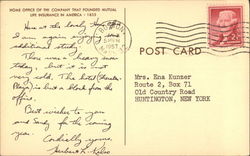 HOME OFFICE OF THE COMPANY THAT FOUNDED MUTUAL
LIFE INSURANCE IN AMERICA - 1835
Here at the lovely
I am again enjoying
additional study.
There was a heavy snow
today, but it is not
very cold. The hotel (Sheraton-
Plaza) is but a block from the
office.
Best wishes to you
and Sandy for the coming
year.
Cordially yours,
1957
POST CARD
Mrs. Ena Kunner
Route 2, Box 71
Old Country Road
HUNTINGTON, NEW YORK